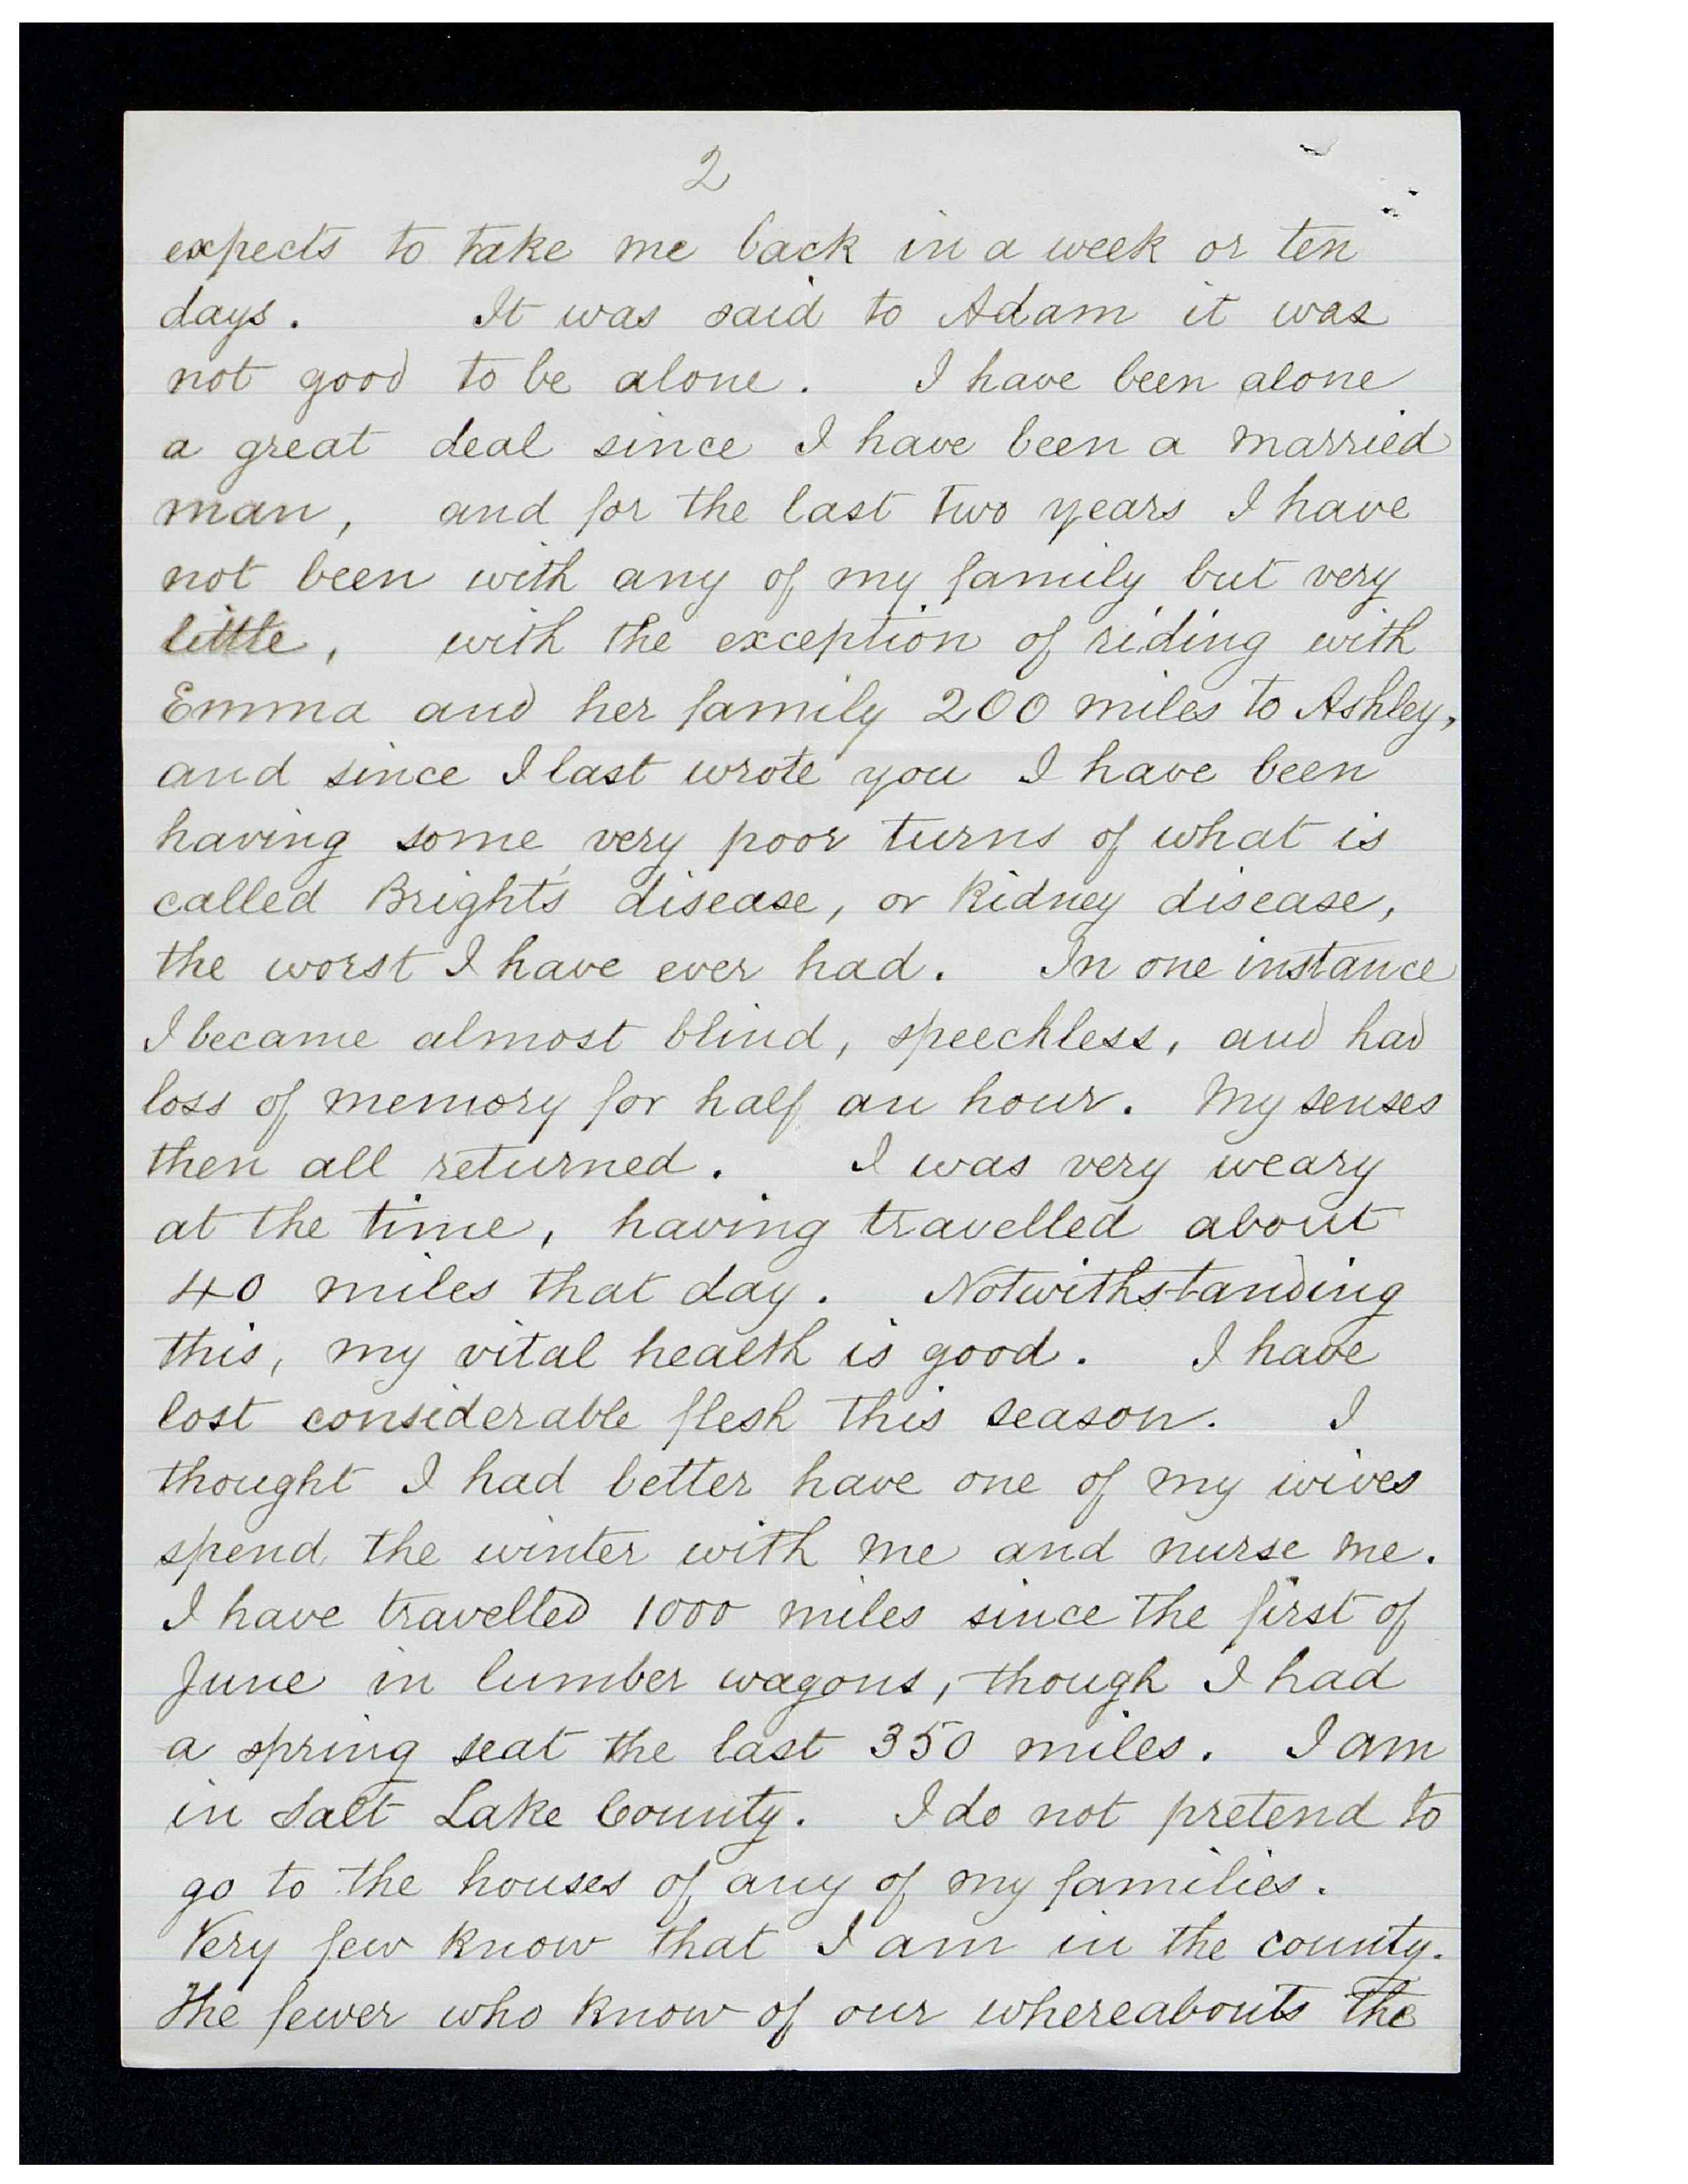 2
expects to take me back in a week or ten
days. It was said to Adam it was
not good to be alone. I have been alone
a great deal since I have been a married
man, and for the last two years I have
not been with any of my family but very
little, with the exception of riding with
Emma and her family 200 miles to Ashley,
and since I last wrote you I have been
having some very poor turns of what is
called Bright's disease, or Kidney disease,
the worst I have ever had. In one instance
I became almost blind, speechless, and had
loss of memory for half an hour. My senses
then all returned. I was very weary
at the time, having travelled about
40 miles that day. Notwithstanding
this, my vital health is good. I have
lost considerable flesh this season. I
thought I had better have one of my wives
spend the winter with me and nurse me.
I have travelled 1000 miles since the first of
June in lumber wagons, though I had
a spring seat the last 350 miles. I am
in Salt Lake County. I do not pretend to
go to the houses of any of my families.
Very few know that I am in the county.
The fewer who know of our whereabouts the